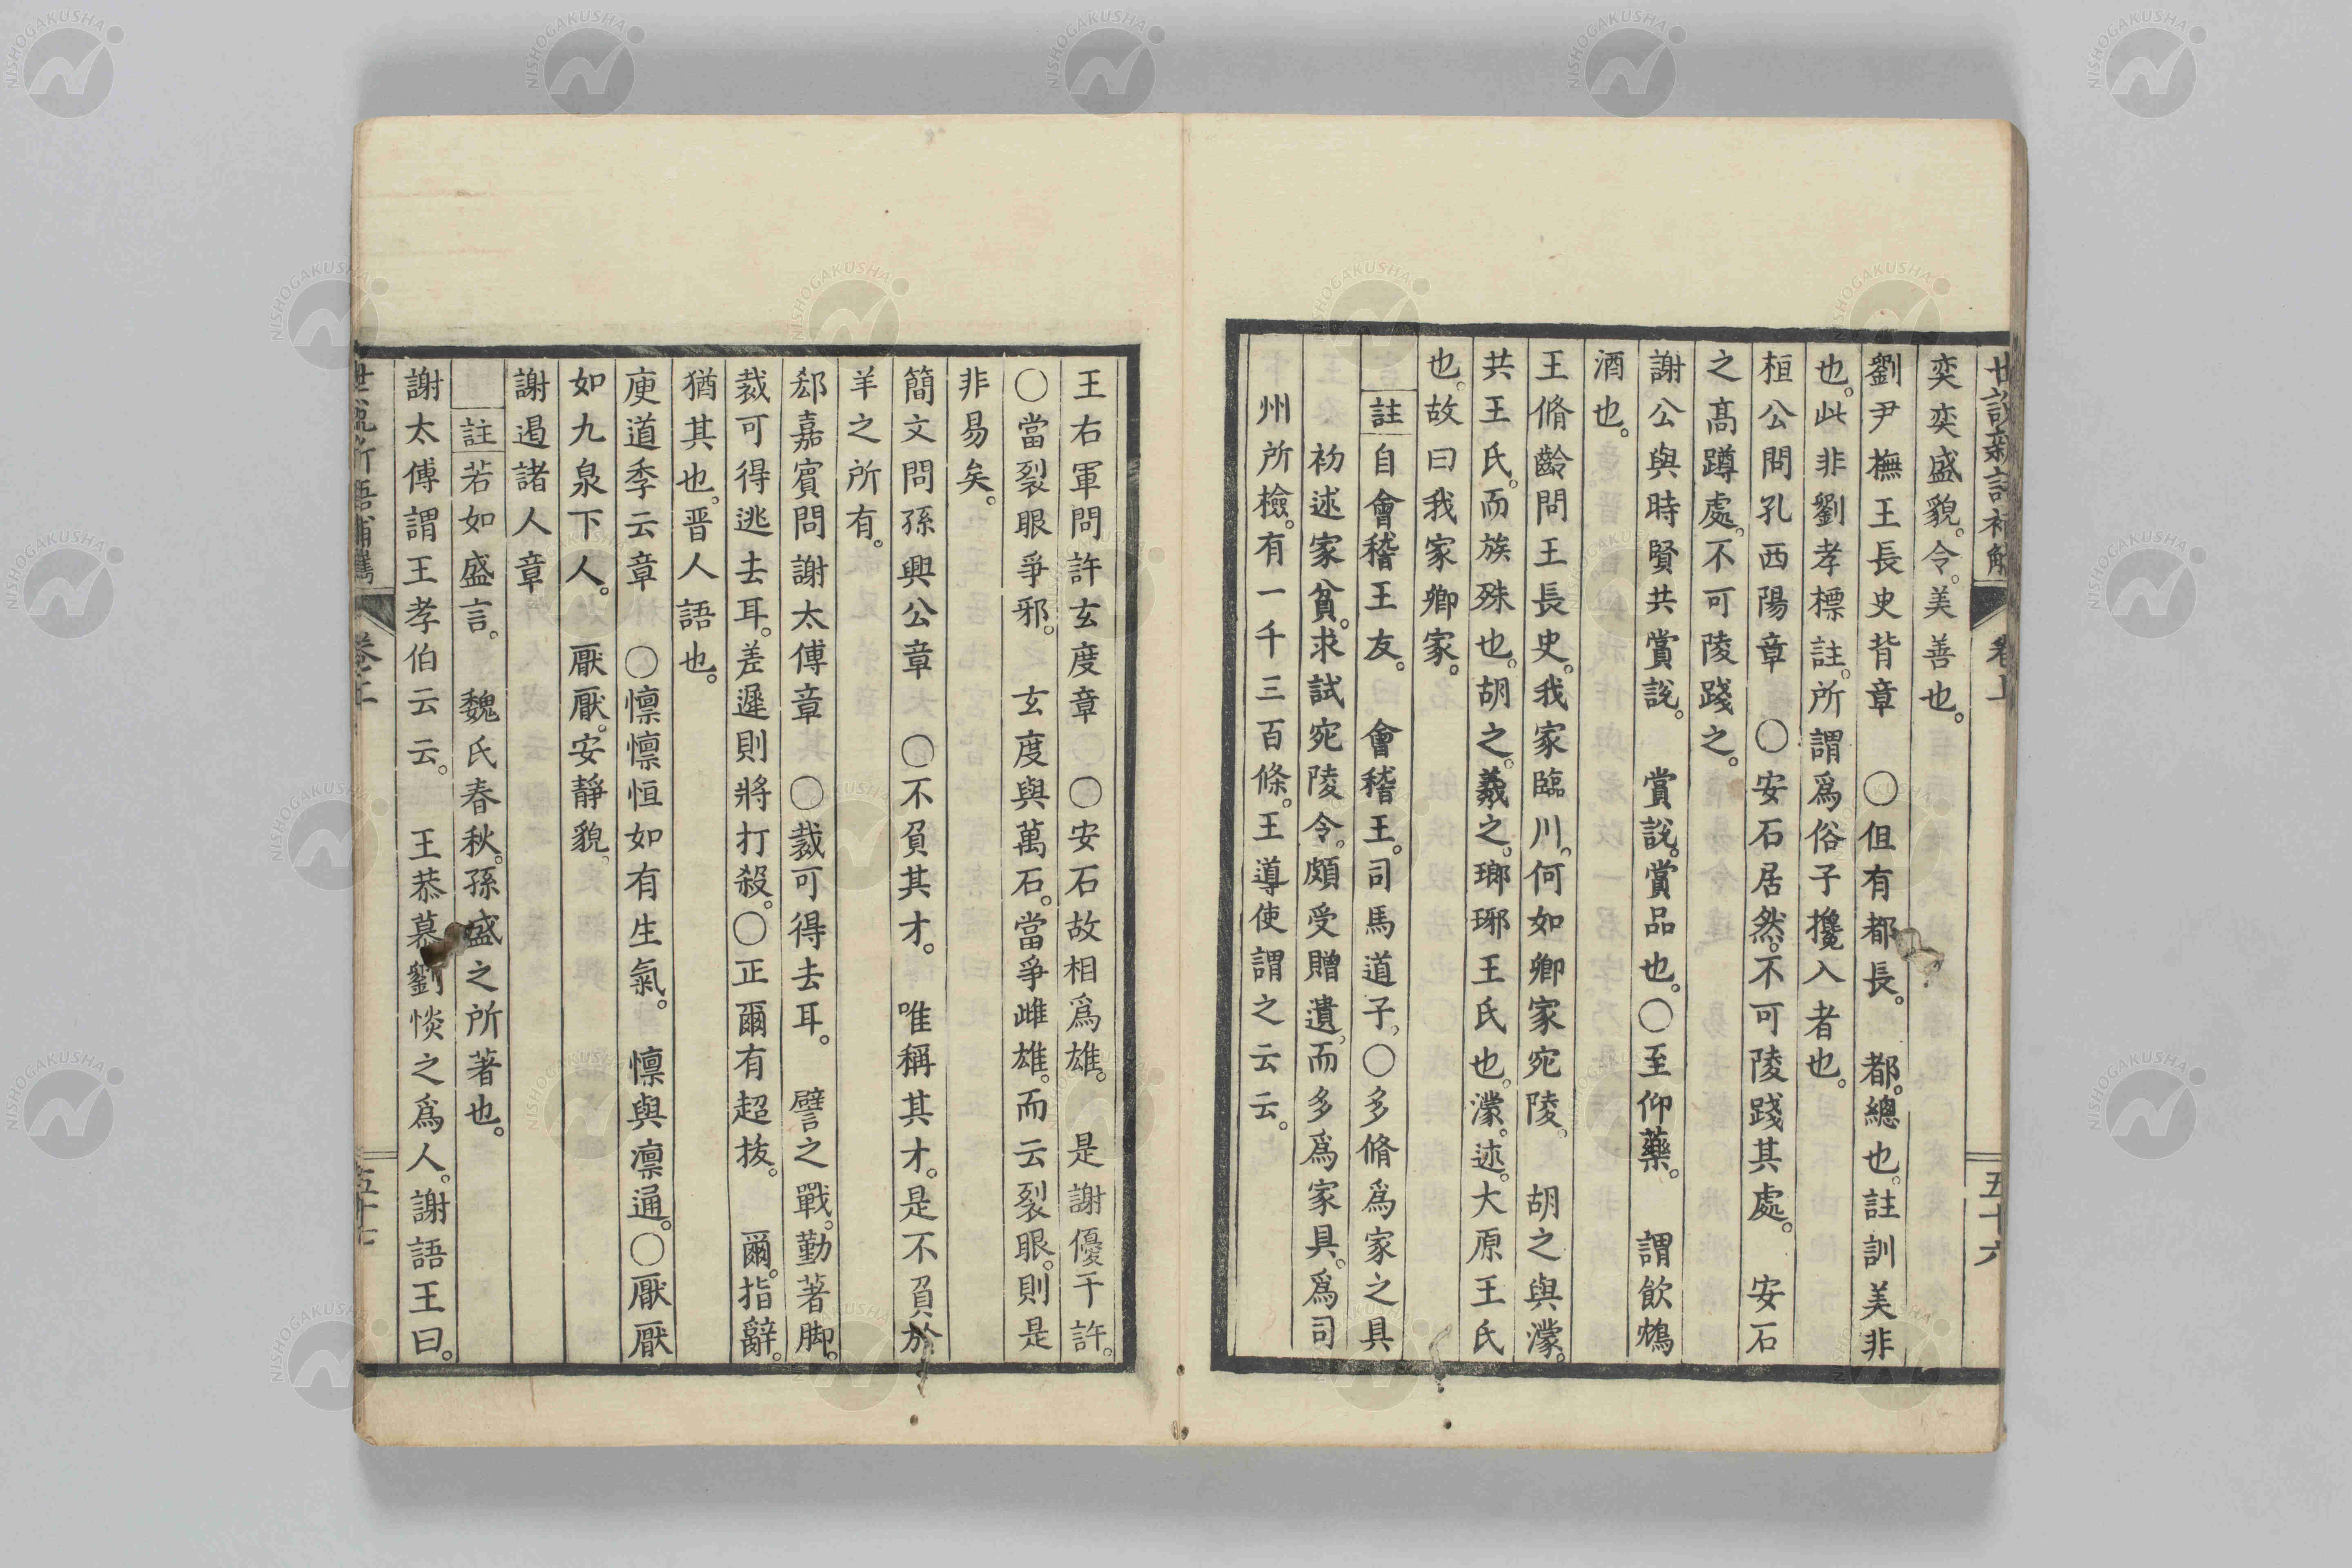 奕奕盛貌。令。美善也。
劉尹撫王長史背章　○但有都長。　都。總也。註訓美非
也。此非劉孝標註。所謂爲俗子攙入者也。
桓公問孔西陽章　○安石居然。不可陵踐其處。　安石
之高蹲處。不可陵踐之。
謝公與時賢共賞說。　賞說。賞品也。○至仰藥。　謂飲鴆
酒也。
王脩齡問王長史。我家臨川。何如卿家宛陵。　胡之與濛。
共王氏。而族殊也。胡之。羲之。瑯琊王氏也。濛。述。大原王氏
也。故曰我家卿家。
註　自會稽王友。　會稽王。司馬道子。○多脩爲家之具
初述家貧。求試宛陵令。頗受贈遺。而多爲家具。爲司
州所檢。有一千三百條。王導使謂之云云。
卷上
五十六
王右軍問許玄度章　○安石故相爲雄。　是謝優于許。
○當裂眼爭邪。　玄度與萬石。當爭雌雄。而云裂眼。則是
非易矣。
簡文問孫興公章　○不負其才。　唯稱其才。是不負於
羊之所有。
郄嘉賓問謝太傅章　○裁可得去耳。　譬之戰。勤著脚。
裁可得逃去耳。差遲則將打殺。○正爾有超拔。　爾。指辭。
猶其也。晋人語也。
庾道季云章　○懍懍恒如有生氣。　懍與凛通。○厭厭
如九泉下人。　厭厭。安靜貌。
謝遏諸人章
註　若如盛言。　魏氏春秋。孫盛之所著也。
謝太傅謂王孝伯云云。　王恭慕劉惔之爲人。謝語王曰。